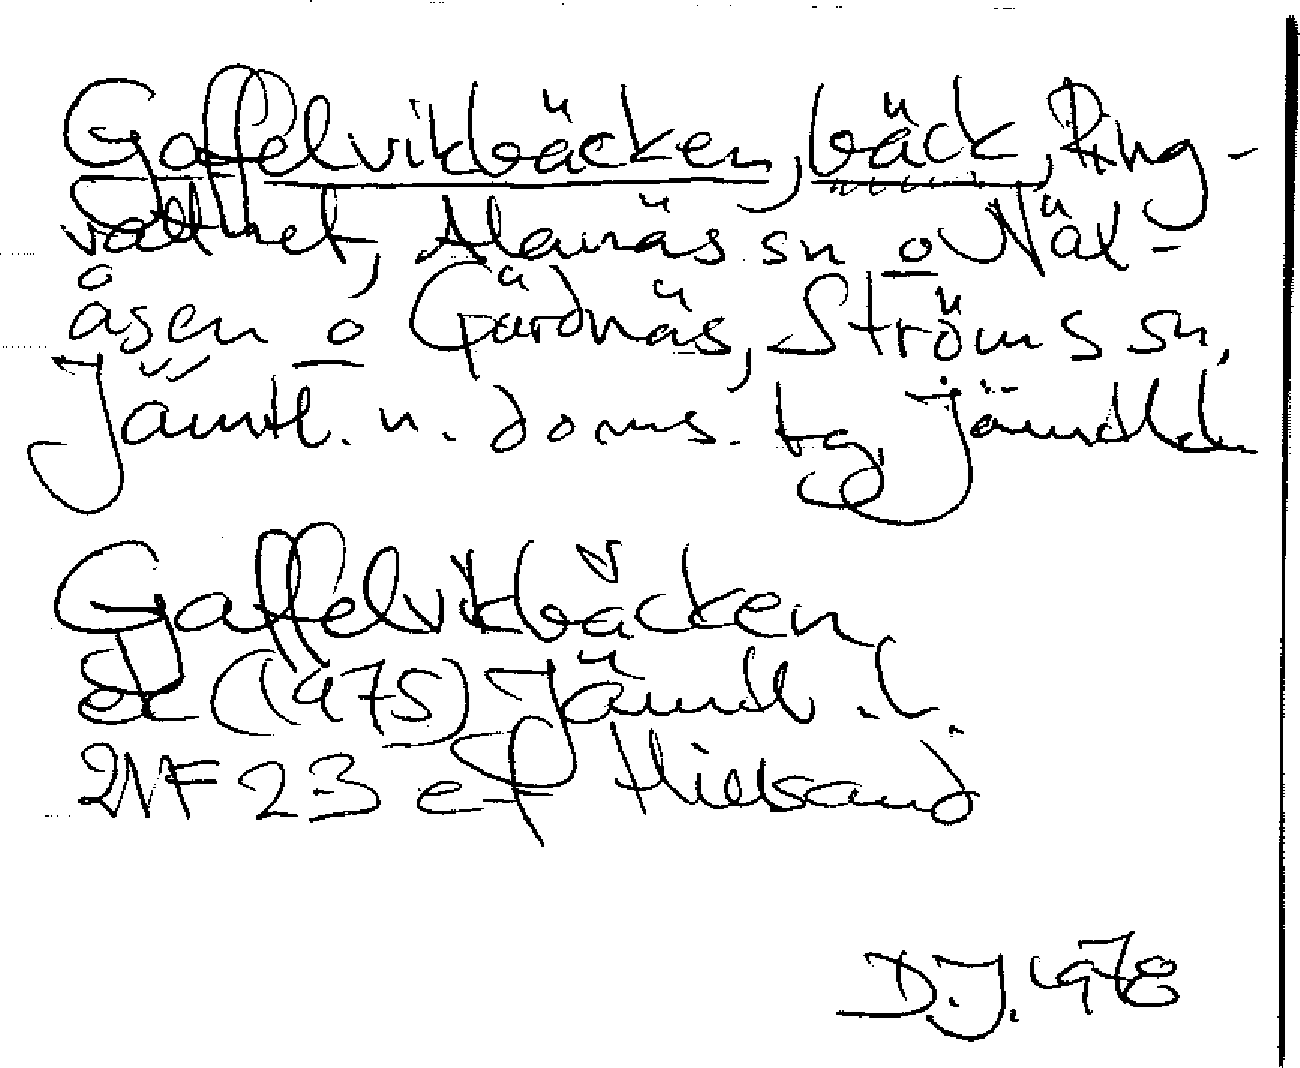 Gaffelvikbäcken, bäck, Ring-
vattnet, Alanäs sn o Näl-
åsen o Gärdnäs, Ströms sn,
Jämtl. n. doms. tg, Jämtl
Gaffelvikbäcken
ek (1975) Jämtl. l.
22F 23 ef
D.J. 1978